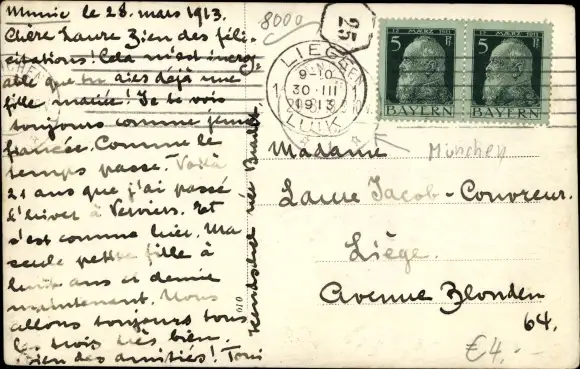 Munic le 28. mars 1913.
Chère Laure Zien des féli-
citations! Cela n'est incroy-
able que tu aies déjà une
fille mariée! Je te vois
toujours comme jeune
fiancée. Comme le
temps passe. Voilà
21 ans que j'ai passé
l'hiver à Verviers. Et
c'est comme hier. Ma
seule petite fille a
huit ans et demie
maintenant. Nous
allons toujours tous
les trois très bien.
Bien des amitiés! Toni
8000
25
LIEGE
9-10
30 III
1913
LUIK
5 12 MAERZ 1911 5
BAYERN BAYERN
Madame
München
Laure Jacob-Couvreur.
Liège.
Avenue Blonden
64.
€4,-
010